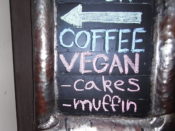 COFFEE
VEGAN
-cakes
-muffin